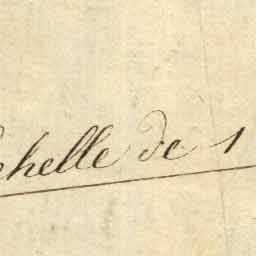 chelle de 1